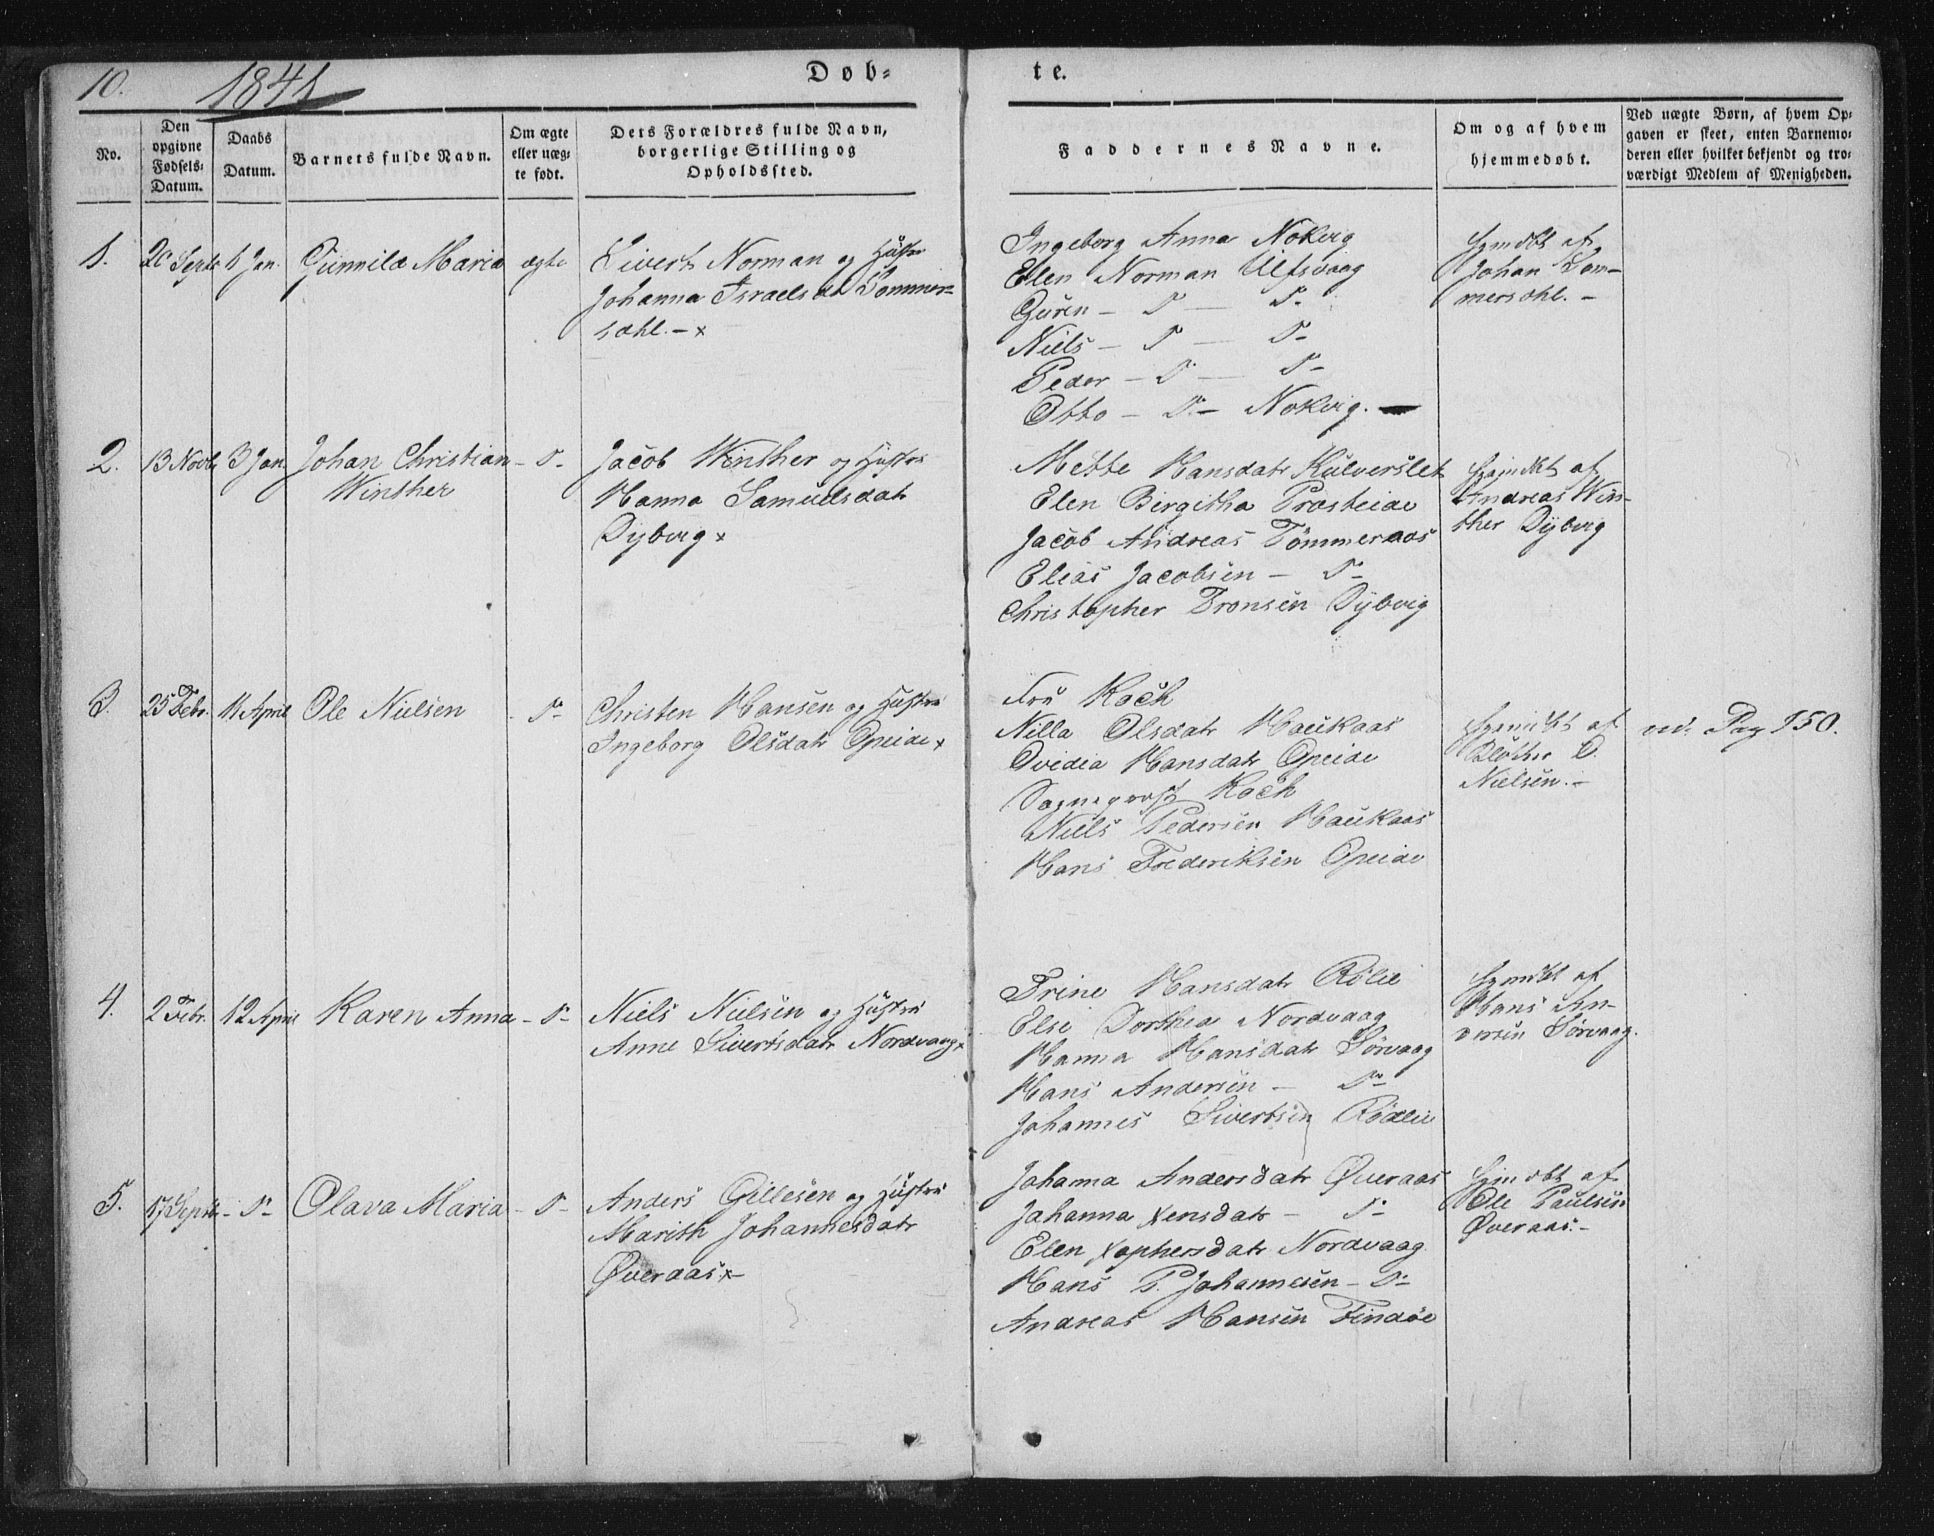 10. 1841 Døb= te.
No.
Den opgivne Fødsels= Datum.
Daabs Datum.
Barnets fulde Navn.
Om ægte eller uæg= te født.
Dets Forældres fulde Navn, borgerlige Stilling og Opholdssted.
Faddernes Navne.
Om og af hvem hjemmedøbt.
Ved uægte Børn, af hvem Op= gaven er skeet, enten Barnemo= deren eller hvilket bekjendt og tro= værdigt Medlem af Menigheden.
1. 20 Septr 1 Jan. Gunnilæ Maria ægte
Sivert Norman og Hustru
Johanna Israelsdtr Sommer=
sdhl. - x
Ingeborg Anna Nøkvig
Elen Norman Ulfsvaag
Guren - D - D-
Niels - D - D-
Peder - D - D-
Otto - D - Nøkvig. -
Hjmdbt af
Johan Som-
mersdhl. -
2. 13 Novbr 3 Jan. Johan Christian - D-
Winther
Jacob Winther og Hustru
Hanna Samuelsdatr
Dybvig x
Mette Hansdatr Kulverslet
Elen Birgitha Prosteide
Jacob Andreas Tømmeraas
Elias Jacobsen - D-
Christopher Tronsen Dybvig
Hjmdbt af
Andreas Win-
ther Dybvig
3. 25 Febr. 11 April Ole Nielsen - D-
Christen Hansen og Hustru
Ingeborg Olsdatr Opeide x
Fru Koch
Nilla Olsdatr Haukaas
Ovidia Hansdatr Opeide
Sogneprest Koch
Niels Pedersen Haukaas
Hans Frederiksen Opeide
Hjemdbt af
O.
Nielsen. -
vid. Pag 150.
4. 2 Febr. 12 April Karen Anna - D-
Niels Nielsen og Hustru
Anne Sivertsdatr Nordvaag x
Trine Hansdatr Rølie
Else Dorthea Nordvaag
Hanna Hansdatr Sørvaag
Hans Andersen - D-
Johannes Sivertsen Rødlie
Hjemdbt af
Hans An-
dersen Sørvaag.
5. 17 Septr - D- Olava Maria - D-
Anders Gillesen og Hustru
Marith Johannesdatr
Øveraas x -
Johanna Andersdatr Øveraas
Johanna Jensdatr - D-
Elen Xophersdatr Nordvaag
Hans P. Johannesen - D-
Andreas Hansen Findøe
Hjmdbt af
Ole Paulsen
Øveraas. -